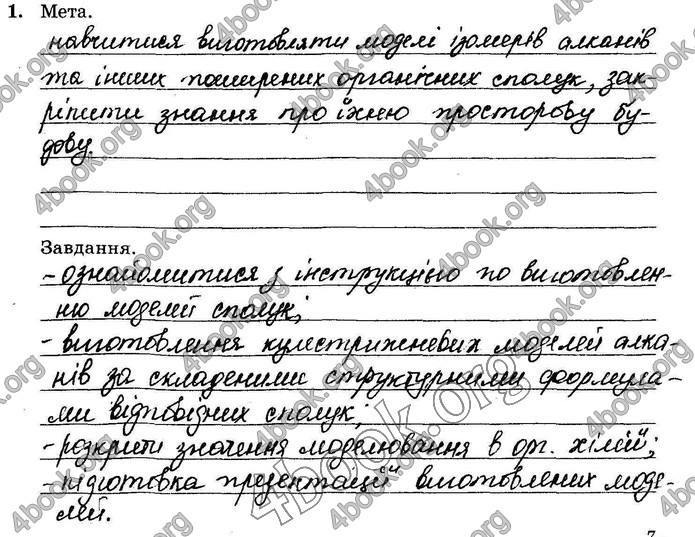 1. Мета.
навчитися виготовляти моделі ізомерів алканів
та інших поширених органічних сполук, зак-
ріпити знання про їхню просторову бу-
дову.
Завдання.
- ознайомитися з інструкцією по виготовлен-
ню моделей сполук;
- виготовлення кулестрижневих моделей алка-
нів за складеними структурними формула-
ми відповідних сполук;
- розкрити значення моделювання в орг. хімії;
- підготовка презентації виготовлених моде-
лей.
7
4book.org